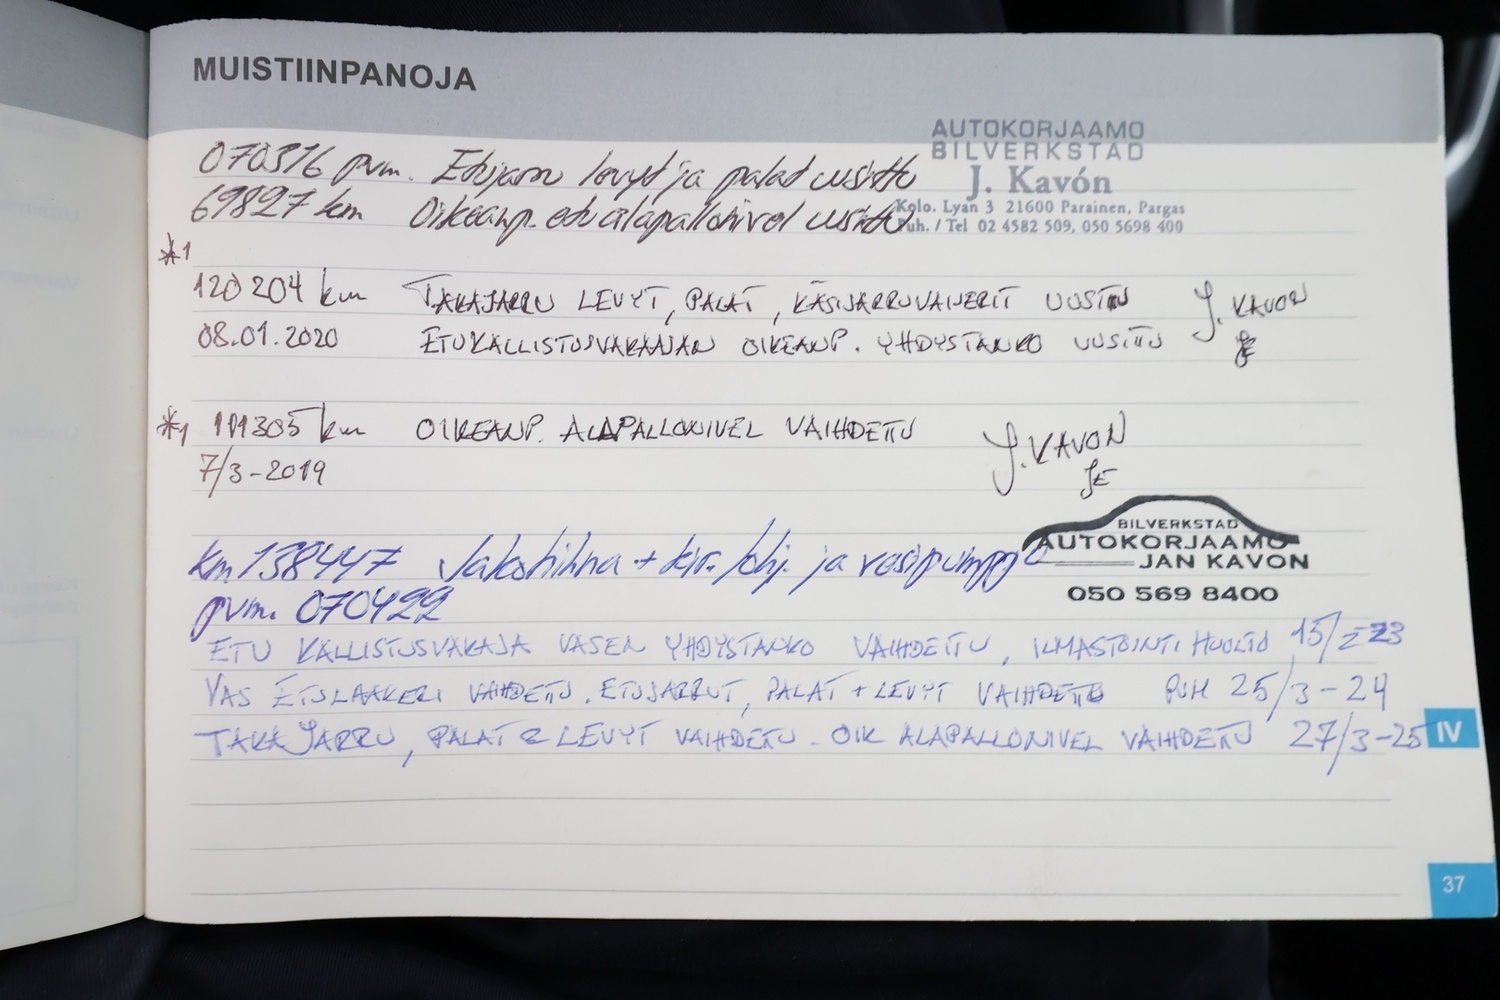 MUISTIINPANOJA
AUTOKORJAAMO
BILVERKSTAD
J. Kavón
Kolo. Lyan 3 21600 Parainen, Pargas
Puh. / Tel 02 4582 509, 050 5698 400
070316 pvm. Etujarru levyt ja palat uusittu
69827 km Oikeanp. etu alapallonivel uusittu
*1
120 204 km TAKAJARRU LEVYT, PALAT, KÄSIJARRUVAIJERIT UUSITTU J. KAVON
08.01.2020 ETUKALLISTUSVAKAAJAN OIKEANP. YHDYSTANKO UUSITTU
*1 111305 km OIKEANP. ALAPALLONIVEL VAIHDETTU J. KAVON
7/3-2019
BILVERKSTAD
AUTOKORJAAMO
JAN KAVON
050 569 8400
km 138447 Jakohihna + kir. / ohj. ja vesipumppu
pvm. 070422
ETU KALLISTUSVAKAJA VASEN YHDYSTANKO VAIHDETTU, ILMASTOINTI HUOLTO 15/2-23
VAS ETULAAKERI VAIHDETTU. ETUJARRUT, PALAT + LEVYT VAIHDETTU 25/3-24
TAKA JARRU, PALAT & LEVYT VAIHDETTU. OIK ALAPALLONIVEL VAIHDETTU 27/3-25
IV
37